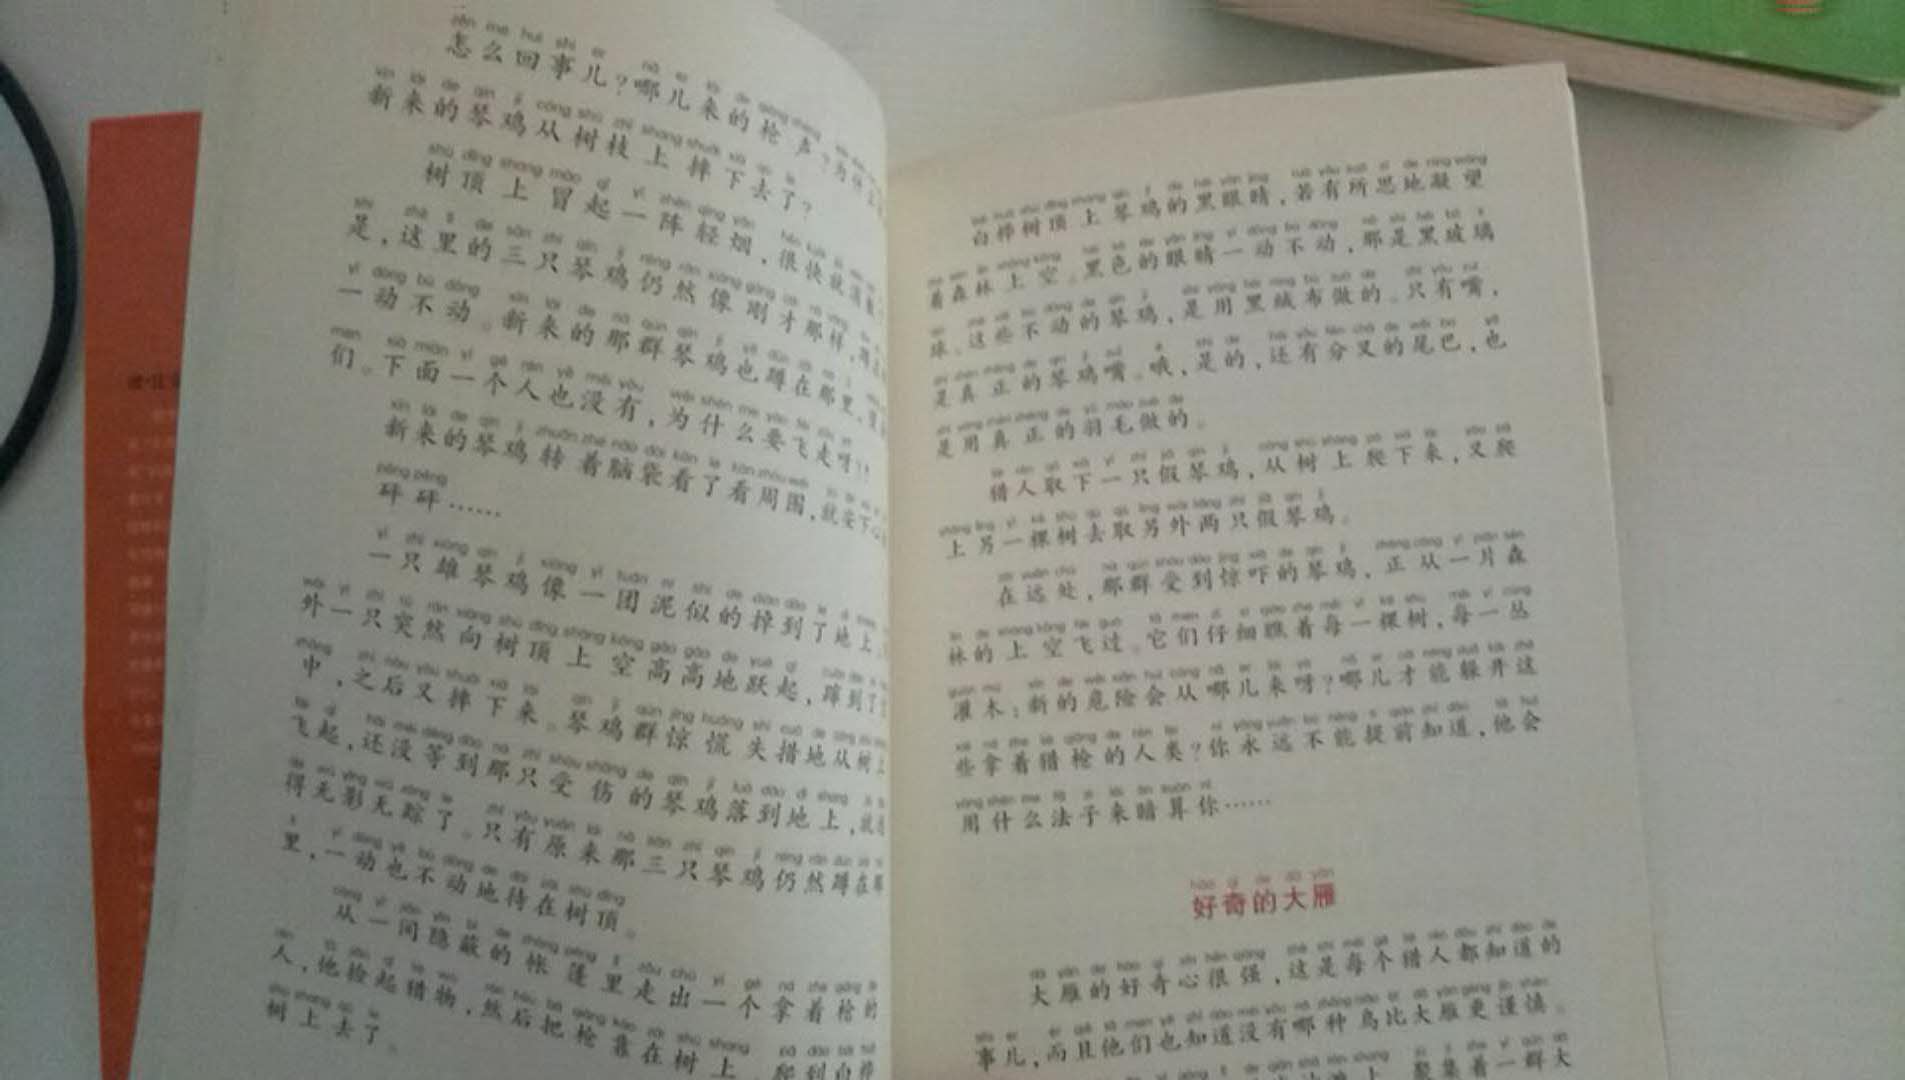 怎么回事儿？哪儿来的枪声？为什么
新来的琴鸡从树枝上摔下去了？
树顶上冒起一阵轻烟，很快就消散
是，这里的三只琴鸡仍然像刚才那样，蹲在
一动不动。新来的那群琴鸡也蹲在那里，望
们。下面一个人也没有，为什么要飞走呀？！
新来的琴鸡转着脑袋看了看周围，就安下心
砰砰……
一只雄琴鸡像一团泥似的掉到了地上。
外一只突然向树顶上空高高地跃起，蹿到了空
中，之后又摔下来。琴鸡群惊慌失措地从树上
飞起，还没等到那只受伤的琴鸡落到地上，就
得无影无踪了。只有原来那三只琴鸡仍然蹲在那
里，一动也不动地待在树顶。
从一间隐蔽的帐篷里走出一个拿着枪的
人，他捡起猎物，然后把枪靠在树上，爬到白桦
树上去了。
白桦树顶上琴鸡的黑眼睛，若有所思地凝望
着森林上空。黑色的眼睛一动不动，那是黑玻璃
球。这些不动的琴鸡，是用黑绒布做的。只有嘴，
是真正的琴鸡嘴。哦，是的，还有分叉的尾巴，也
是用真正的羽毛做的。
猎人取下一只假琴鸡，从树上爬下来，又爬
上另一棵树去取另外两只假琴鸡。
在远处，那群受到惊吓的琴鸡，正从一片森
林的上空飞过。它们仔细瞧着每一棵树，每一丛
灌木：新的危险会从哪儿来呀？哪儿才能躲开这
些拿着猎枪的人类？你永远不能提前知道，他会
用什么法子来暗算你……
好奇的大雁
大雁的好奇心很强，这是每个猎人都知道的
事儿，而且他们也知道没有哪种鸟比大雁更谨慎。
上，聚集着一群大